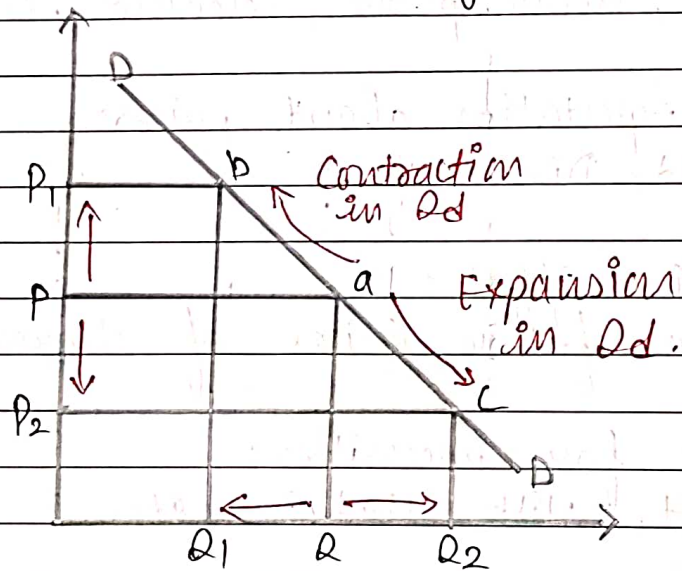 D
P1
b
Contraction
in Qd
P
a
Expansion
in Qd.
P2
C
D
Q1
Q
Q2